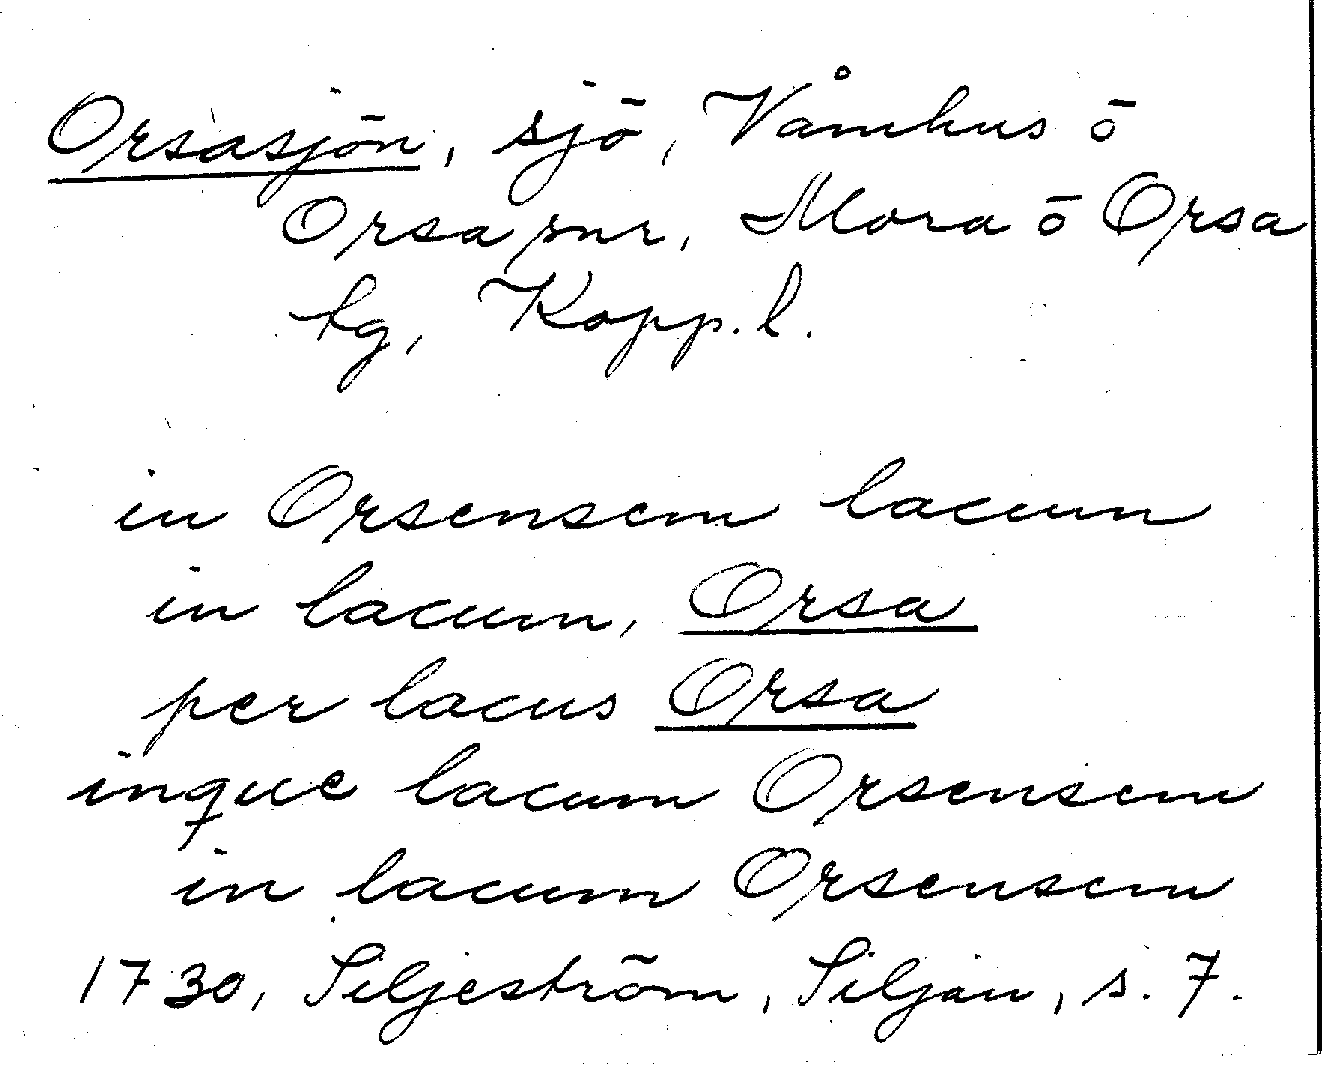 Orsasjön, sjö, Våmhus ō
Orsa snr, Mora ō Orsa
tg, Kopp. l.
in Orsensem lacum
in lacum, Orsa
per lacus Orsa
inque lacum Orsensem
in lacum Orsensem
1730, Siljeström, Siljan, s. 7.